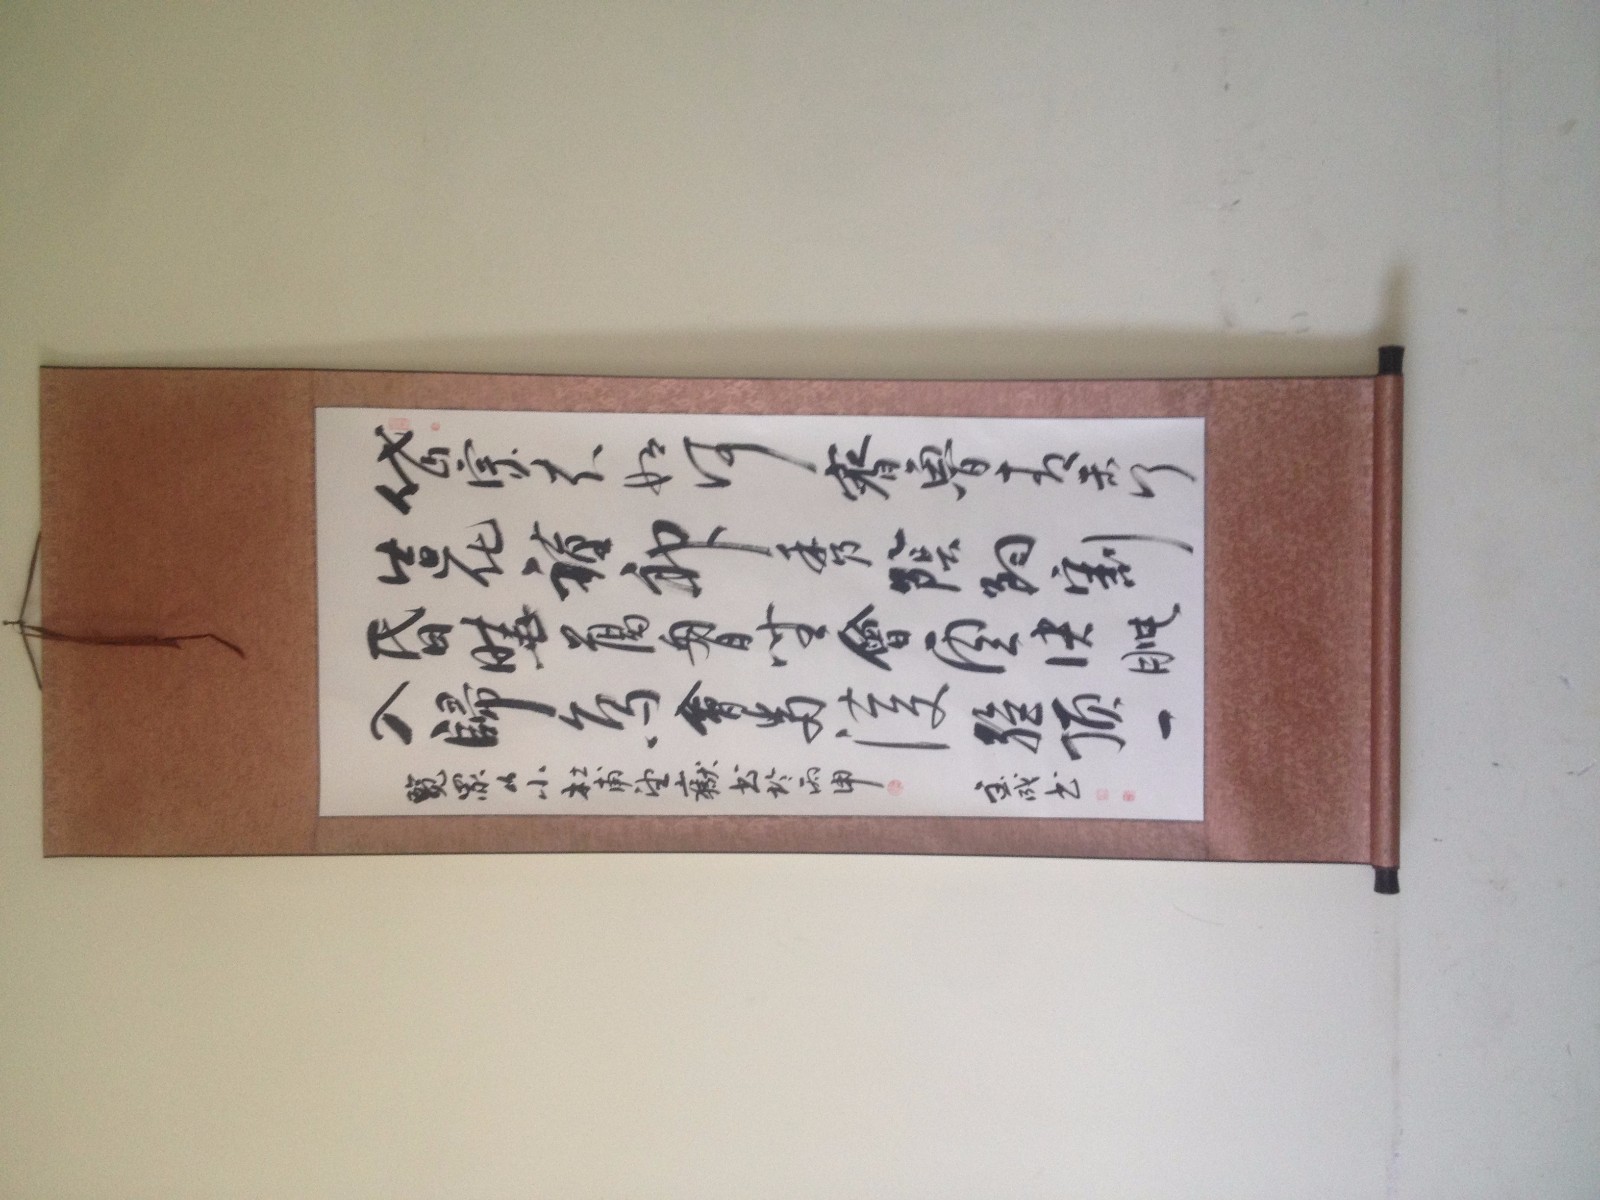 岱宗夫如何齊魯青未了
造化鍾神秀陰陽割
昏曉蕩胸生曾雲決眥
入歸鳥會當凌絕頂一
覽眾山小杜甫望嶽書於